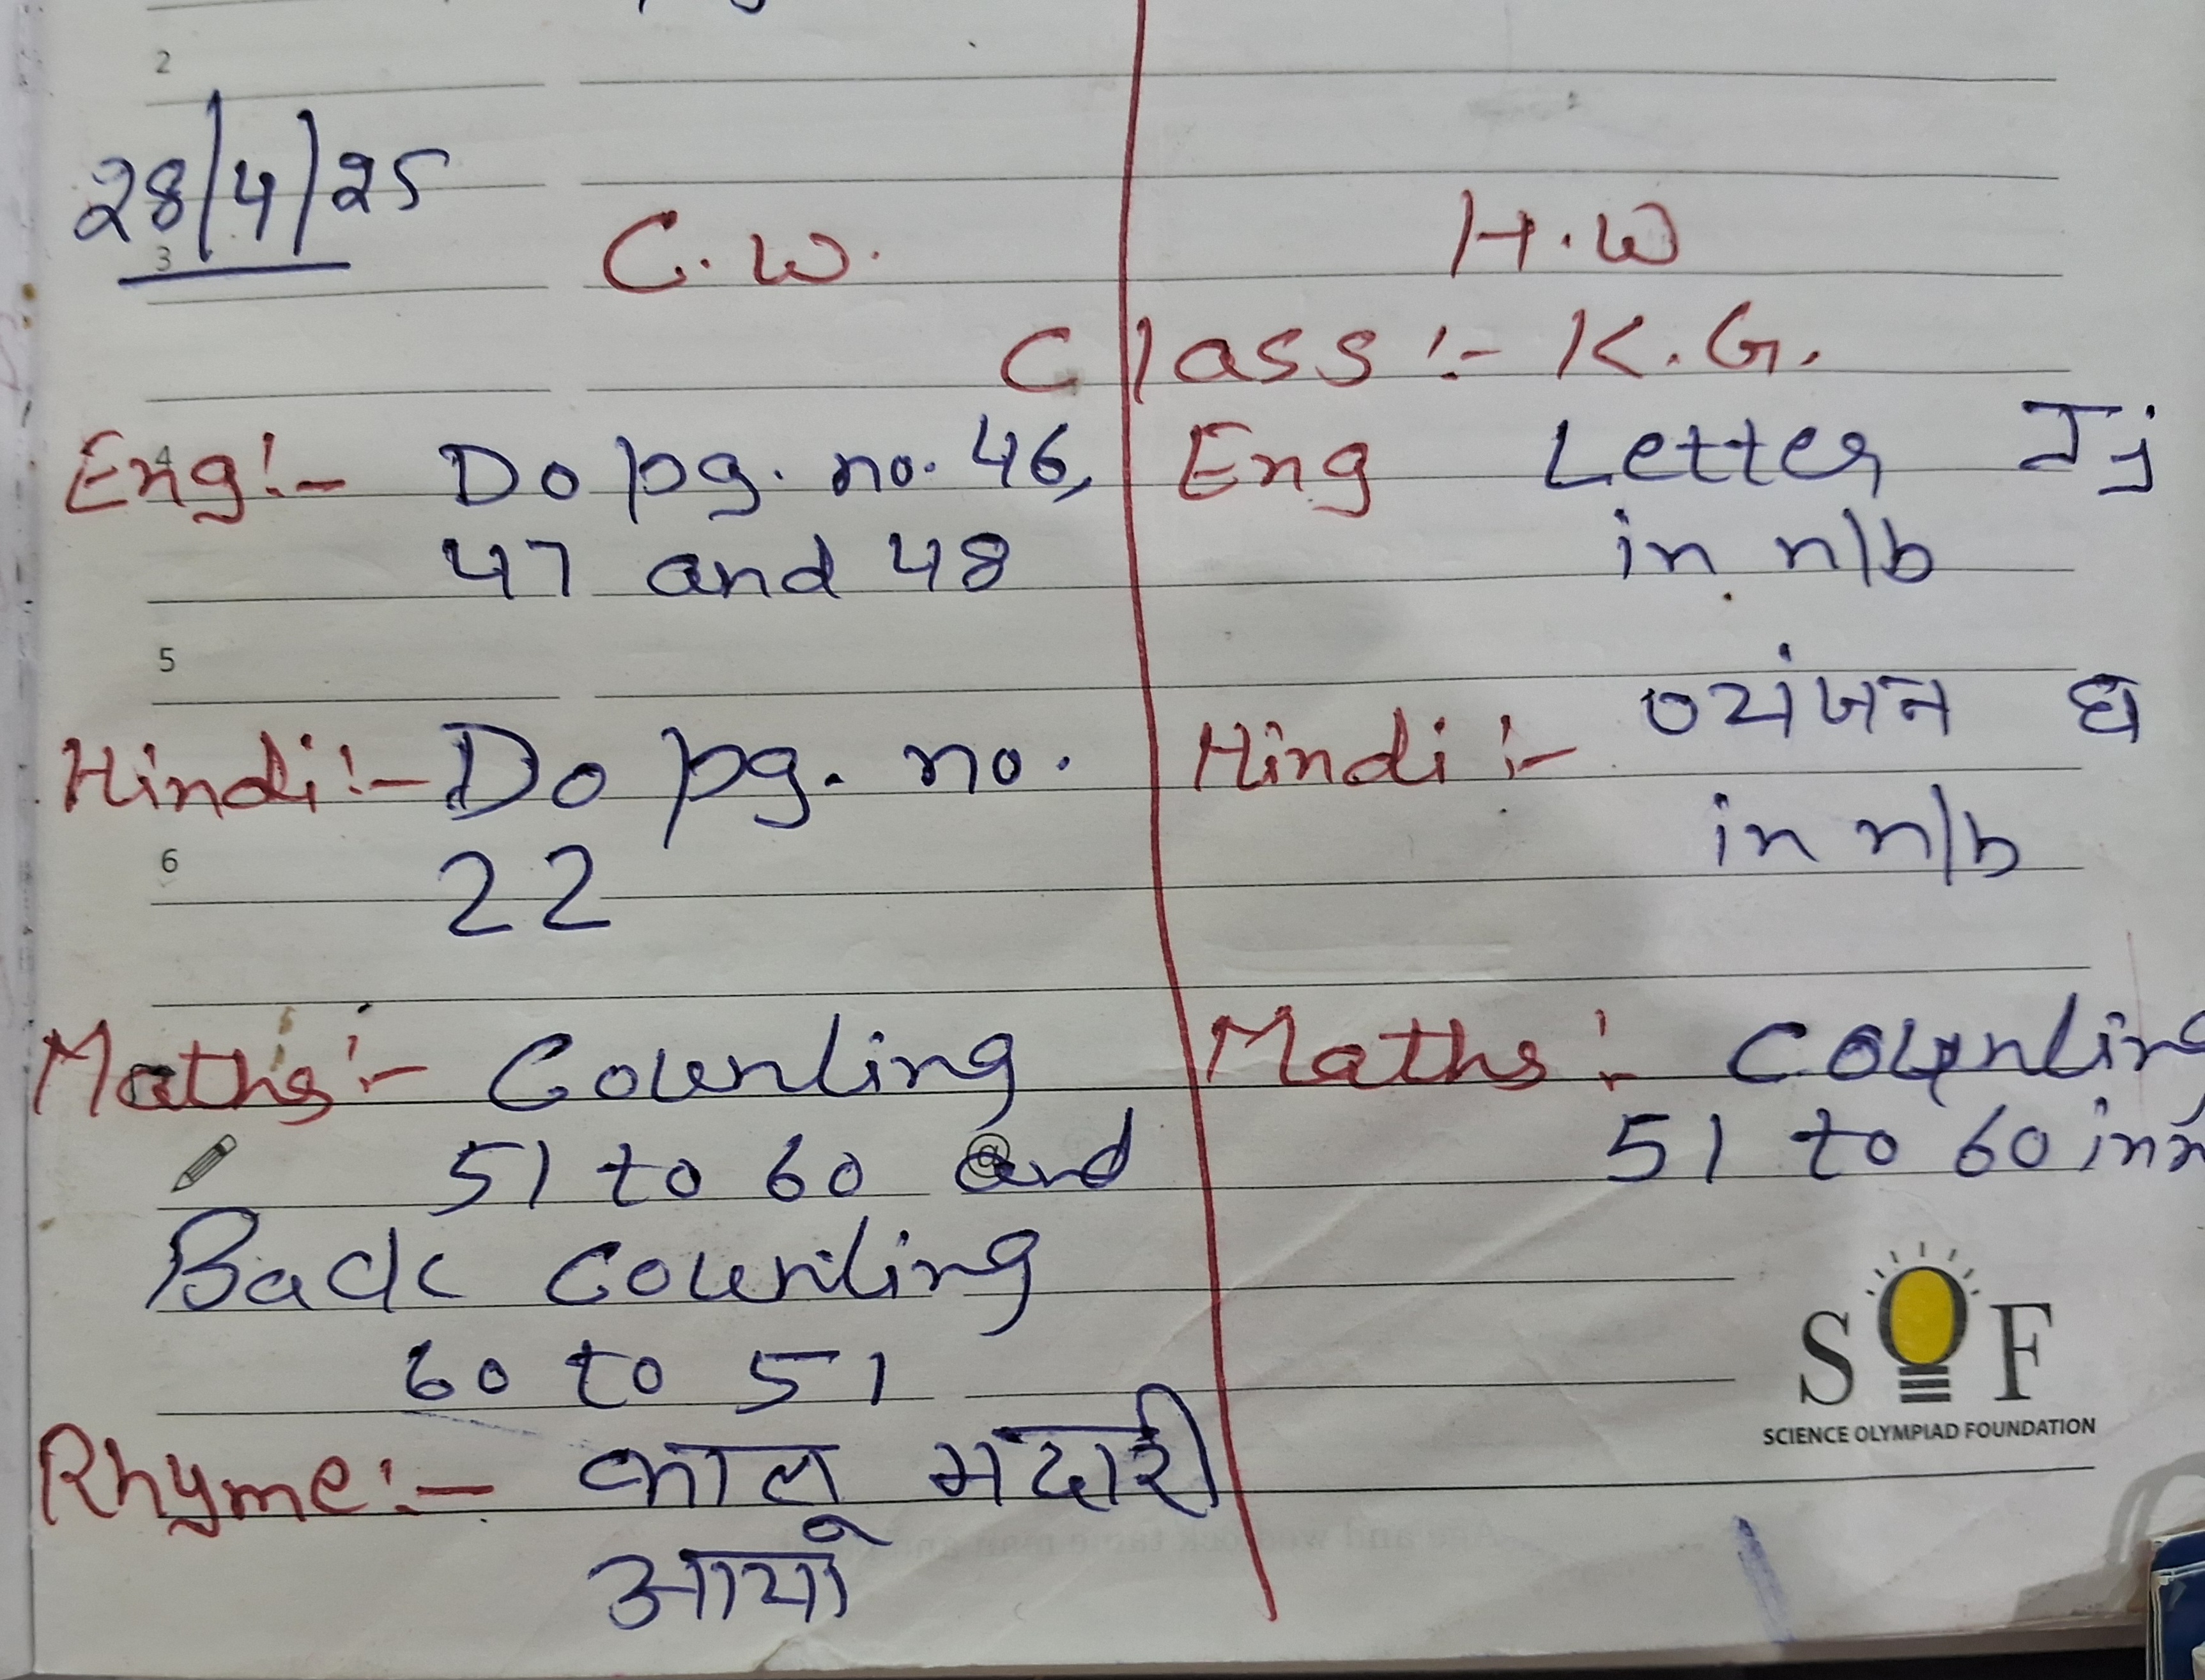 2
28/4/25
3
C.W.
H.W
Class:- K.G.
4
Eng:- Do pg. no. 46,
47 and 48
Eng Letter Jj
in n/b
5
Hindi:- Do pg. no.
22
6
Hindi:- व्यंजन घ
in n/b
Maths:- Counting
51 to 60 and
Back counting
60 to 51
Maths:- Countin
51 to 60 in n
Rhyme:- काल मदारी
आयो
SOF
SCIENCE OLYMPIAD FOUNDATION